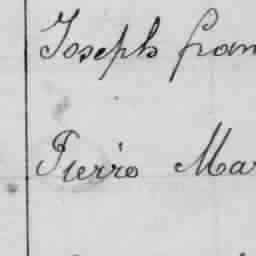 Joseph fran
Pierre Mar